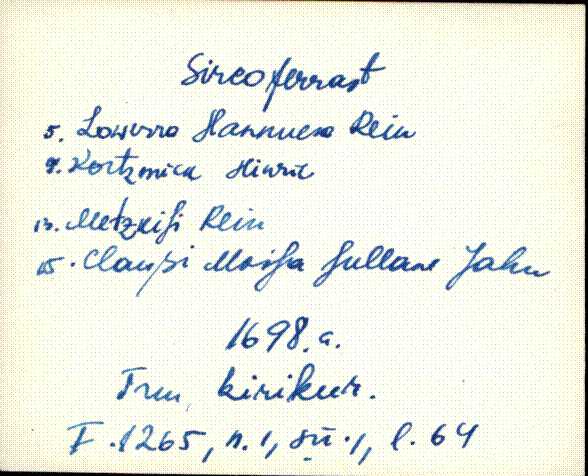 Sircoferrast
5. Lowurra Hannuesa Rein
9. Kortzmick Hinric
13. Metzkihi Rein
15. Clauszi Moisa Sullane Jahn
1698.a.
Trm. kirikur.
F.1265, n.1, sü.1, l.64